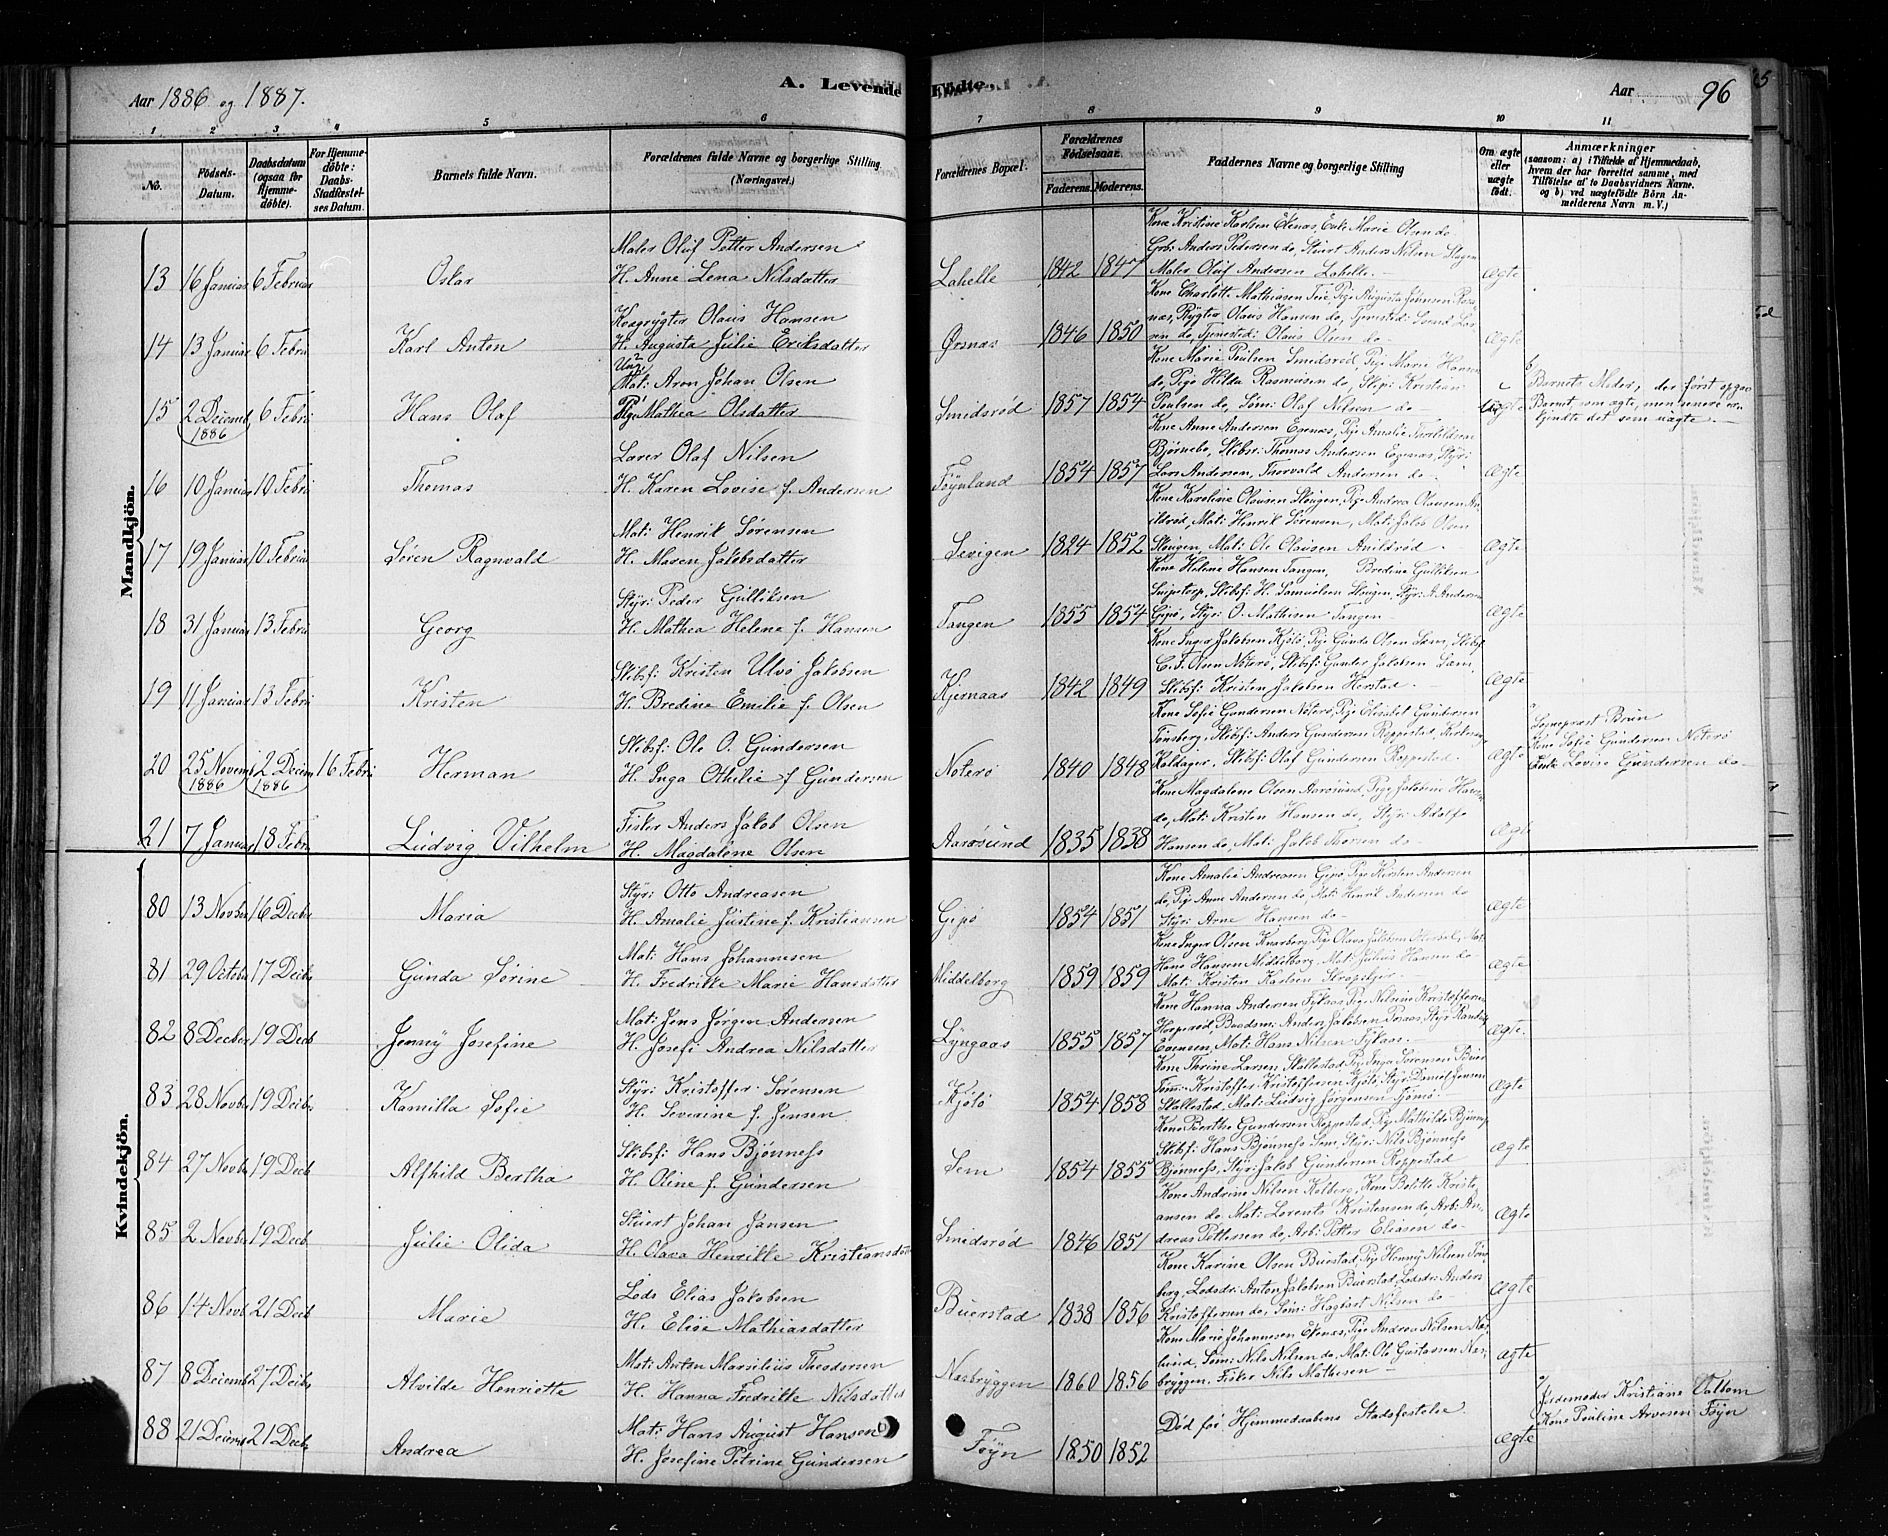 Aar 1886 og 1887.
A. Levende Födte.
Aar
96
1 2 3 4 5 6 7 8 9 10 11
No.
Födsels-Datum.
Daabsdatum (ogsaa for Hjemme-döbte).
For Hjemme-döbte: Daabs-Stadfæstel-ses Datum.
Barnets fulde Navn.
Forældrenes fulde Navne og borgerlige Stilling. (Næringsvei.)
Forældrenes Bopæl.
Forældrenes Födselsaar.
Faderens. Moderens.
Faddernes Navne og borgerlige Stilling
Om ægte eller uægte födt.
Anmærkninger
(saasom: a) i Tilfælde af Hjemmedaab, hvem der har forrettet samme, med Tilföielse af to Daabsvidners Navne, og b) ved uægtefödte Börn An-melderens Navn m. V.)
Mandkjön.
13 16 Januar 6 Februar Oskar Maler Oluf Petter Andersen
H. Anne Lena Nilsdatter Lahelle 1842 1847 Ægte
Kone Kristine Karlsen Ekenæs, Enke Marie Olsen do
Grb: Anders Pedersen do, Stuert Anders Nilsen Slagen
Maler Oluf Andersen Lahelle.
14 13 Januar 6 Febru Karl Anton Olaus Hansen
H. Augusta Julie Eriksdatter Ørsnæs 1846 1850 Ægte
Kone Charlotte Mathiasen Teie, Pige Augusta Johnsen
Røgter Olaus Hansen do, Tjenestedr: Svend Lar-
sen do, Tjenestedr: Olaus Olsen do
15 2 Decemb 1886 6 Febru Hans Olaf Ung Mat: Aron Johan Olsen
Pige Mathea Olsdatter Smidsrød 1857 1854 Uægte
Kone Marie Poulsen Smidsrød, Pige Marie Hansen
do, Pige Hilda Rasmusen do, Skip: Kristian
Poulsen do, Søm: Olaf Nilsen do
Barnets Moder, der först opgav
Barnet som ægte, men senere er-
kjendte det som uægte.
16 10 Januar 10 Febru Thomas Lærer Olaf Nilsen
H. Karen Lovise f. Andersen Føynland 1854 1857 Ægte
Kone Anne Andersen Egenæs, Pige Amalie
Bjørnebo, Skbsr: Thomas Andersen Egenæs, Styr:
Lars Andersen, Thorvald Andersen do
17 19 Januar 10 Februar Søren Ragnvald Mat: Henrik Sørensen
H. Maren Jakobsdatter Levigen 1824 1852 Ægte
Kone Karoline Olausen Skougen, Pige Andrea Olausen An-
ildrød, Mat: Henrik Sørensen, Mat: Jakob Olsen
Skougen, Mat: Ole Olausen Anildrød.
18 31 Januar 13 Febru Georg Styr: Peder Gulliksen
H. Mathea Helene f. Hansen Tangen 1855 1854 Ægte
Kone Helene Hansen Tangen, Bredine Gulliksen
Skibsf: H. Samuelsen Skougen, Styr: A. Andersen
Gipø, Styr: O. Mathisen Tangen
19 11 Januar 13 Febru Kristen Skibsf: Kristen Ulvø Jakobsen
H. Bredine Emilie f. Olsen Kjernaas 1842 1849 Ægte
Kone Inger Jakobsen Kjøle, Pige Gunda Olsen Sæm, Skibsf
C. F. Olsen Nøterø, Skibsf: Gunder Jakobsen Sæm
Skibsf: Kristen Jakobsen Herstad
20 25 Novemb 1886 2 Decem 1886 16 Febru Herman Skibsf: Ole O. Gundersen
H. Inga Othilie f. Gundersen Nøterø 1840 1848 Ægte
Kone Sofie Gundersen Nøterø, Pige Elisabet Gundersen
Tønsberg, Skibsf: Anders Gundersen Roppestad,
Kaldager, Skibsf: Olaf Gundersen Roppestad.
Sognepræst Brun
Kone Sofie Gundersen Nøterø
Lovise Gundersen do
21 7 Januar 18 Febru Ludvig Vilhelm Fisker Anders Jakob Olsen
H. Magdalene Olsen Aarøsund 1835 1838 Ægt
Kone Magdalene Olsen Aarøsund, Pige Jakobine Hansen
do, Mat: Kristen Hansen do, Styr: Adolfs
Hansen do, Mat: Jakob Thorsen do
Kvindekjön.
80 13 Novber 16 Decber Maria Styr: Otto Andreasen
H. Amalie Justine f. Kristiansen Gipø 1854 1851 Ægte
Kone Amalie Andreasen Gipø, Pige Karsten Andersen
do, Pige Anne Andersen do, Mat: Henrik Andersen do
Styr: Arne Hansen do
81 29 Octbr 17 Decb Gunda Sørine Mat: Hans Johannesen
H. Fredrikke Marie Hansdatter Middelborg 1859 1859 Ægte
Kone Inger Olsen Knarberg, Pige Olava Jakobsen Mat:
Hans Hansen Middelborg, Mat: Julius Hansen do
Mat: Kristen Karlsen
82 8 Decber 19 Decb Jenny Josefine Mat: Jens Jørgen Andersen
H. Josefi Andrea Nilsdatter Lyngaas 1855 1857 Ægte.
Kone Hanna Andersen Fylaas, Pige Nilsine Kristoffersen
Baadsm: Anders Jakobsen Styr:
Evensen, Mat: Hans Nilsen Fylaas.
83 28 Novbr 19 Decbr Kamilla Sofie Styr: Kristoffer Sørensen
H. Severine f. Jensen Kjøle 1854 1858 Ægte
Kone Thrine Larsen Skallestad, Pige Inga Sørensen Buer
Kristoffer Kristoffersen Kjøle, Styr: Daniel Jensen
Skallestad, Mat: Ludvig Jørgensen Tjømø.
84 27 Novbr 19 Decb Alfhild Bertha Skibsf: Hans Bjønness
H. Oline f. Gundersen Sem 1854 1855 Ægte
Kone Berthe Gundersen Roppestad, Pige Mathilde Bjønness
Skibsf: Hans Bjønness Sem, Styr: Nils Bjønness
Bjønness, Styr: Jakob Gundersen Roppestad
85 2 Novbr 19 Decb Julie Olida Stuert Johan Jansen
H. Olava Henrikke Kristiansdatt Smidsrød 1846 1851 Ægte
Kone Andrine Nilsen Kolberg, Kone Bolitte Kristi-
ansen do, Mat: Lorents Kristensen do, Arb: An-
dreas Pettersen do, Arb: Petter Eliasen do
86 14 Novb 21 Decb Marie Lods Elias Jakobsen
H. Elise Mathiasdatter Buerstad 1838 1856 Ægte
Kone Karine Olsen Buerstad, Pige Henny Nilsen Tøns-
berg, Lodsdr: Anton Jakobsen Buerstad, Lodsdr: Anders
Kristoffersen do, Søm: Hagbart Nilsen do
87 8 Decemb 27 Decbr Alvilde Henriette Mat: Anton Marselius Theodorsen
H. Hanna Fredrikke Nilsdatter Næsbryggen 1860 1856 Ægte
Kone Marie Johannesen Ekenæs, Pige Andrea Nilsen Næs-
lund, Søm: Nils Nilsen do, Mat: Ole Gustavsen Næs-
bryggen, Fisker Nils Mathisen
88 21 Decemb 21 Decb Andrea Mat: Hans August Hansen
H. Josefine Petrine Gundersen Føyn 1850 1852 Ægte
Död för Hjemmedaabens Stadfæstelse
Jordemoder Kristiane Vallom
Kone Pauline Arvesen Føyn